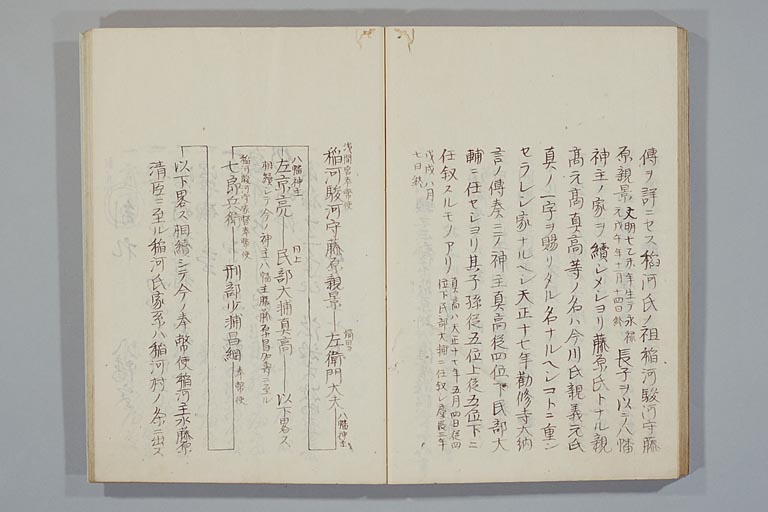 傳ヲ詳ニセス稲河氏ノ祖稲河駿河守藤
原親景文明七乙未年生テ永禄元戊午年十月十四日終長子ヲ以テ八幡
神主ノ家ヲ續シメシヨリ藤原氏トナル親
髙元髙真髙等ノ名ハ今川氏親義元氏
真ノ一字ヲ賜リタル名ナルヘシコトニ重シ
セラレシ家ナルヘシ天正十七年勸修寺大納
言ノ傳奏ニテ神主真髙従四位下民部大
輔ニ任セシヨリ其子孫従五位上従五位下ニ
任叙スルモノアリ真髙ハ天正十七年五月四日従四位下民部大輔ニ任叙シ慶長三年
戊戌八月七日終
浅間宮奉幣使
稲河駿河守藤原親景
左衛門大夫
八幡神主
八幡神主
左京亮
同上
民部大輔真髙
以下畧ス
相續シテ今ノ神主八幡主膳藤原昌
稲河駿河守家督奉幣使
七郎兵衛
刑部少輔昌綱
奉幣使
以下畧ス相續シテ今ノ奉幣使稲河主水藤原
清臣ニ至ル稲河氏家系ハ稲河村ノ条ニ出ス